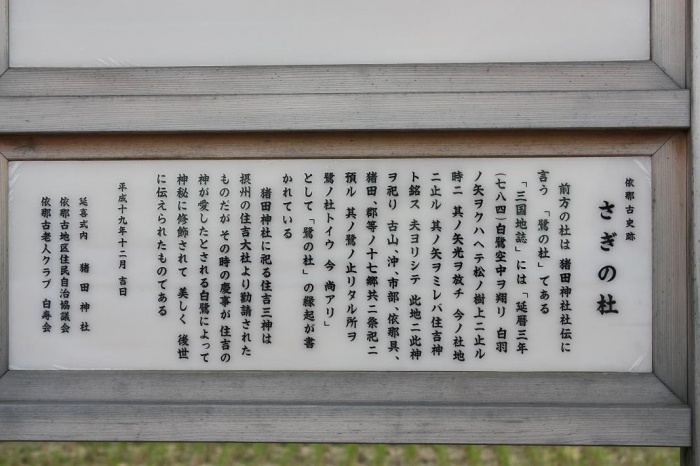 依那古史跡
さぎの杜
前方の杜は 猪田神社社伝に
言う 「鷺の杜」である
「三国地誌」には「延暦三年
(七八四)白鷺空中ヲ翔リ 白羽
ノ矢ヲクハヘテ松ノ樹上ニ止ル
時ニ 其ノ矢光ヲ放チ 今ノ社地
ニ止ル 其ノ矢ヲミレバ住吉神
ト銘ス 夫ヨリシテ 此地ニ此神
ヲ祀り 古山、沖、市部、依那具、
猪田、郡等ノ十七郷共ニ祭祀ニ
預ル 其ノ鷺ノ止リタル所ヲ
鷺ノ杜トイウ 今 尚アリ」
として「鷺の杜」の縁起が書
かれている
猪田神社に祀る住吉三神は
摂州の住吉大社より勧請された
ものだが その時の慶事が 住吉の
神が愛したとされる白鷺によって
神秘に修飾されて 美しく 後世
に伝えられたものである
平成十九年十二月 吉日
延喜式内 猪田神社
依那古地区住民自治協議会
依那古老人クラブ 白寿会